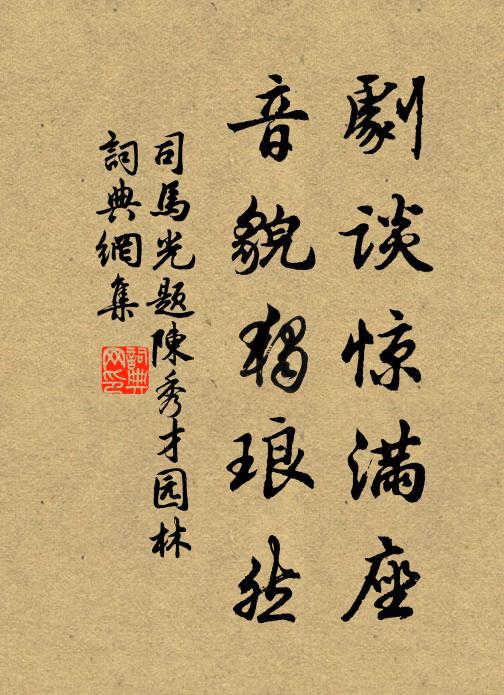 劇談惊滿座
音貌獨琅然
司馬光题陳秀才园林
詞典網集
詞典网印